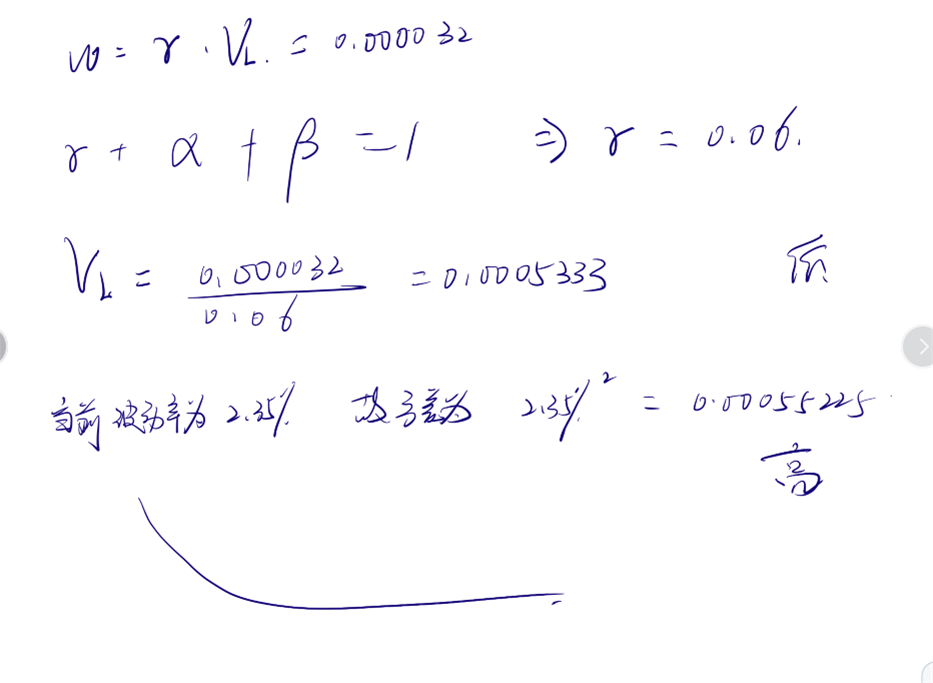 ω = γ · V_L = 0.000032
γ + α + β = 1 ⇒ γ = 0.06.
V_L = 0.000032 / 0.06 = 0.0005333 低
当前波动率为 2.35% 方差为 2.35%² = 0.00055225
高